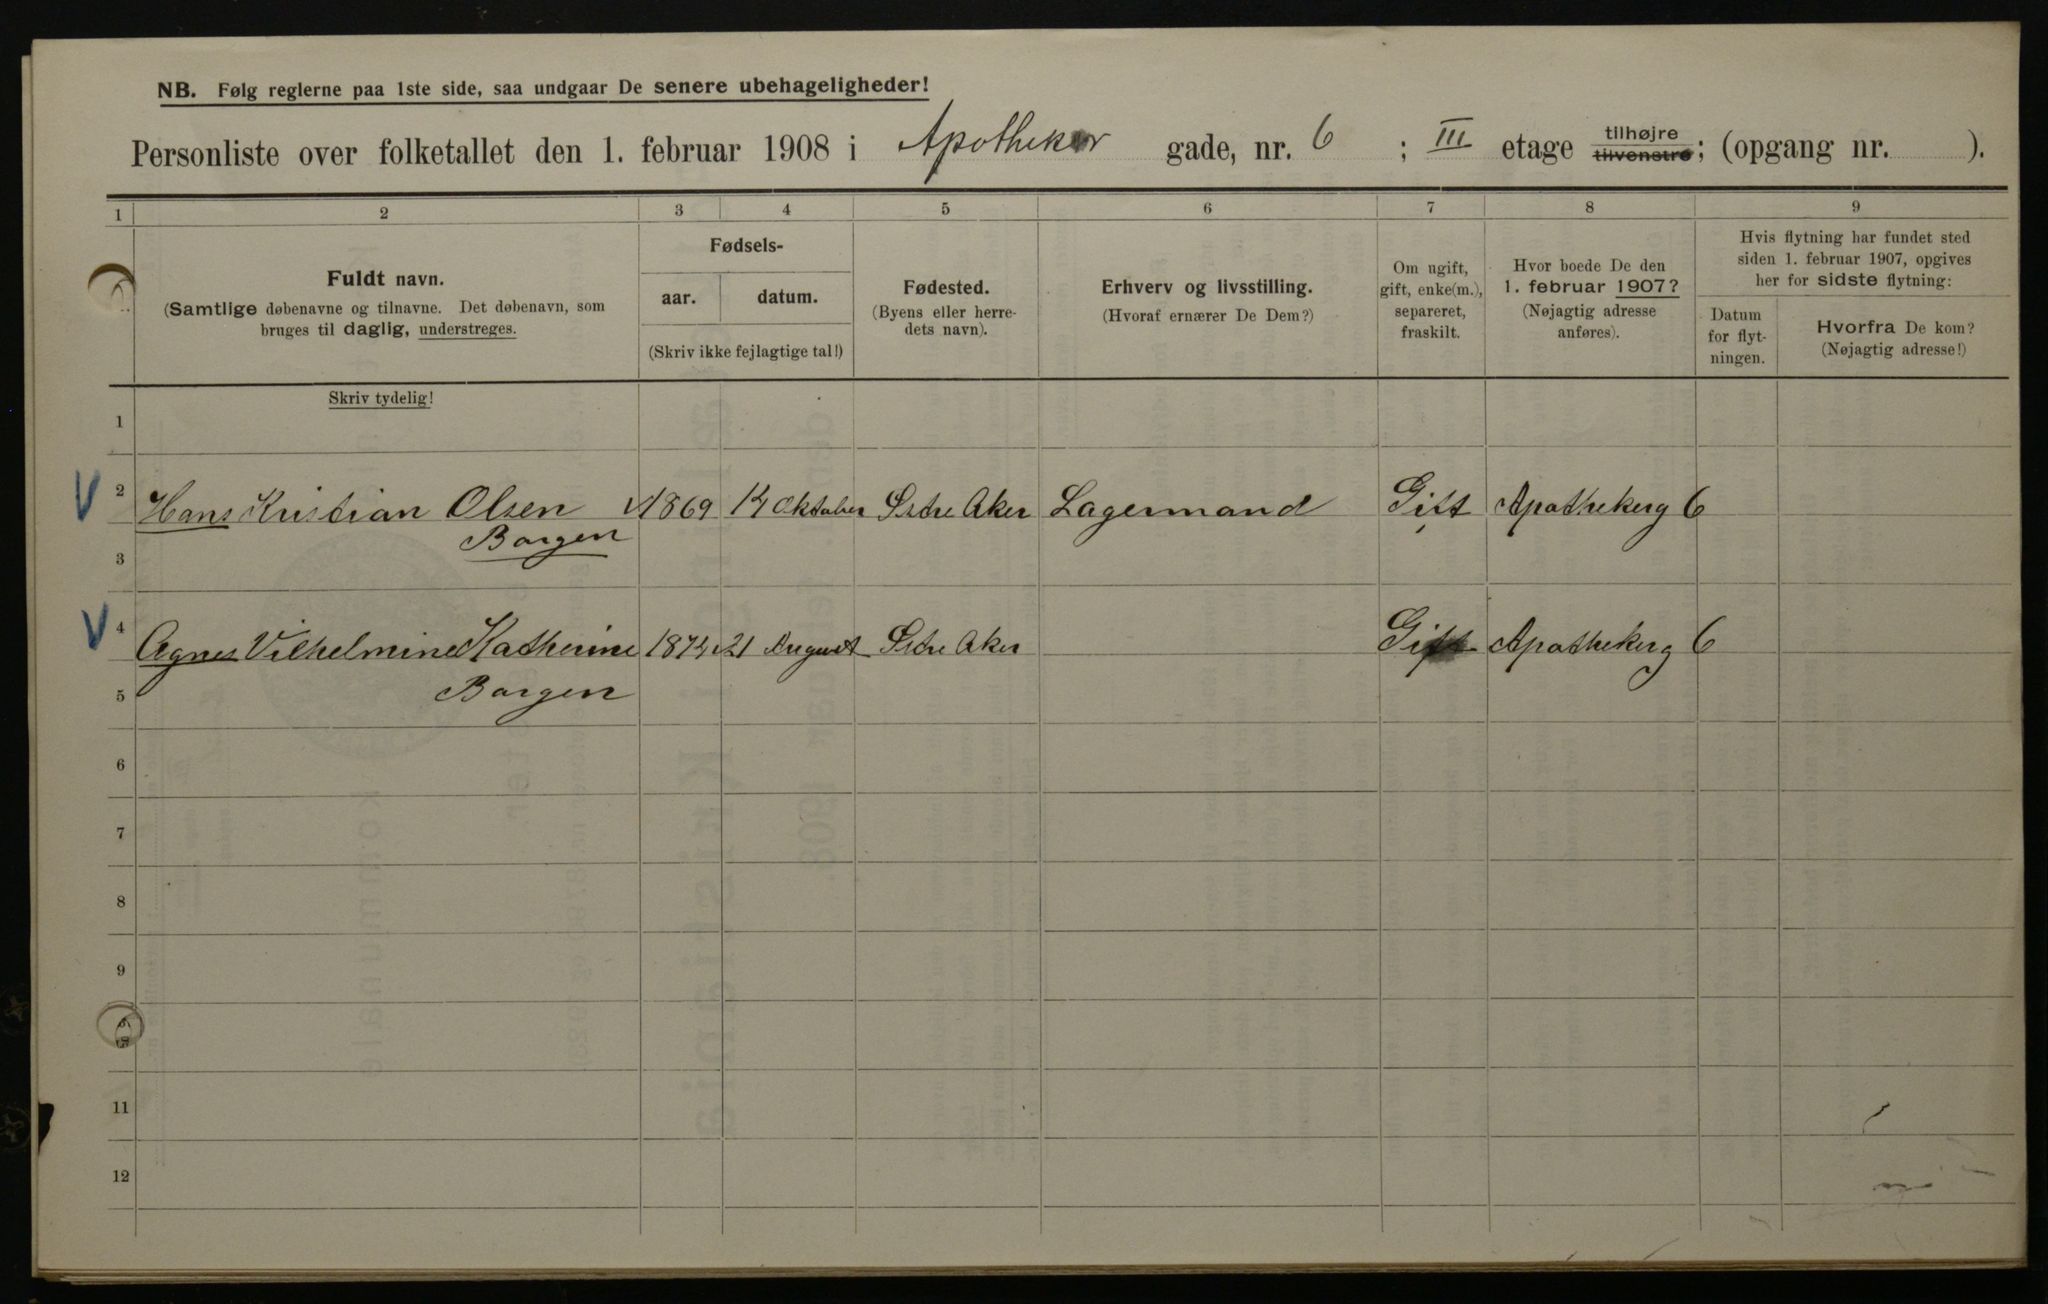 NB. Følg reglerne paa 1ste side, saa undgaar De senere ubehageligheder!
Personliste over folketallet den 1. februar 1908 i Apotheker gade, nr. 6 ; III etage tilhøjre tilvenstre; (opgang nr. ).
1 2 3 4 5 6 7 8 9
Fuldt navn.
(Samtlige døbenavne og tilnavne. Det døbenavn, som
bruges til daglig, understreges.
Skriv tydelig!
Fødsels-
aar. datum.
(Skriv ikke fejlagtige tal!)
Fødested.
(Byens eller herre-
dets navn).
Erhverv og livsstilling.
(Hvoraf ernærer De Dem?)
Om ugift,
gift, enke(m.),
separeret,
fraskilt.
Hvor boede De den
1. februar 1907?
(Nøjagtig adresse
anføres).
Hvis flytning har fundet sted
siden 1. februar 1907, opgives
her for sidste flytning:
Datum
for flyt-
ningen.
Hvorfra De kom?
(Nøjagtig adresse!)
1
2 Hans Kristian Olsen 1869 14 Oktober Østre Aker Lagermand Gift Apothekerg 6
Borgen
3
4 Agnes Vilhelmine Katherine 1874 21 August Østre Aker Gift Apothekerg 6
Borgen
5
6
7
8
9
11
12